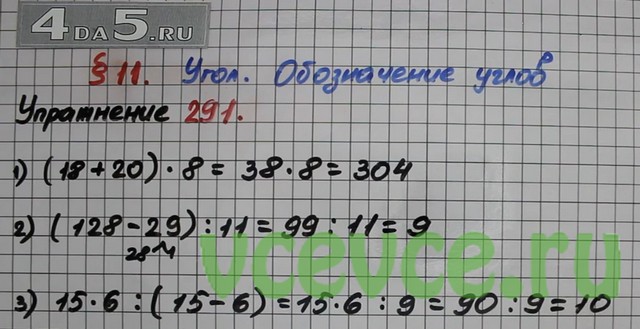 4DA5.RU
§ 11. Угол. Обозначение углов
Упражнение 291.
1) (18+20)·8 = 38·8 = 304
2) (128-29):11 = 99:11 = 9
3) 15·6 : (15-6) = 15·6 : 9 = 90 : 9 = 10
vcevce.ru